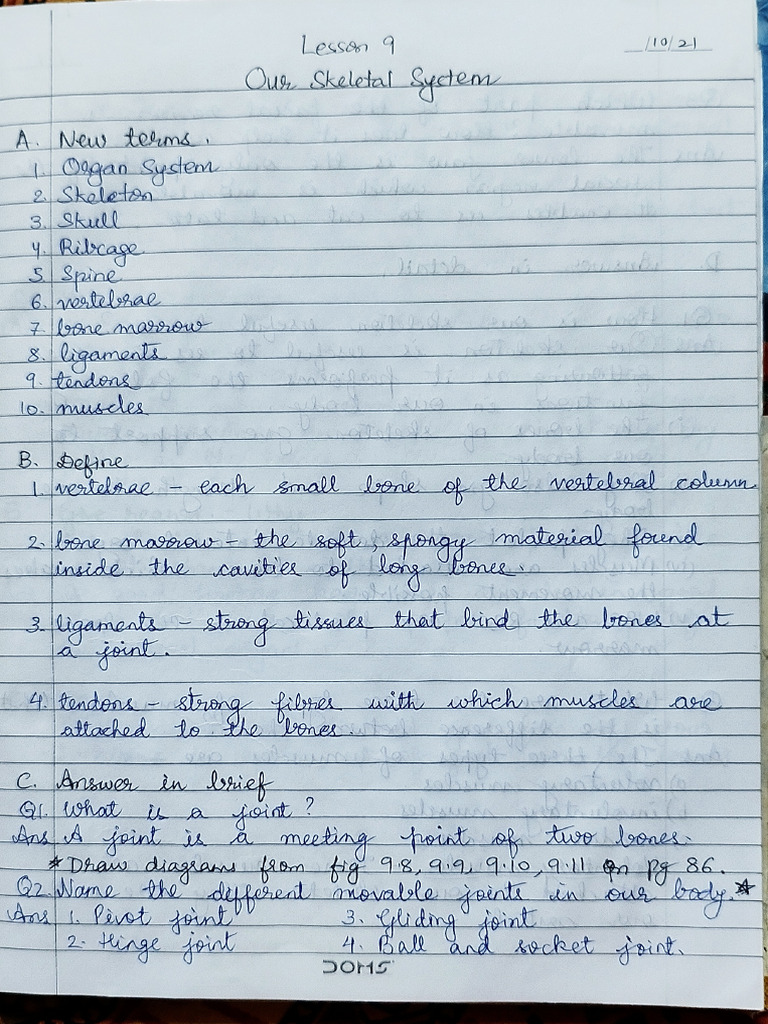 Lesson 9
_/10/21
Our Skeletal System
A. New terms.
1. Organ System
2. Skeleton
3. Skull
4. Ribcage
5. Spine
6. vertebrae
7. bone marrow
8. ligaments
9. tendons
10. muscles
B. Define
1. vertebrae - each small bone of the vertebral column.
2. bone marrow - the soft, spongy material found
inside the cavities of long bones.
3. ligaments - strong tissues that bind the bones at
a joint.
4. tendons - strong fibres with which muscles are
attached to the bones.
C. Answer in brief
Q1. What is a joint?
Ans A joint is a meeting point of two bones.
* Draw diagrams from fig 9.8, 9.9, 9.10, 9.11 on pg 86.
Q2. Name the different movable joints in our body.*
Ans 1. Pivot joint 3. Gliding joint
2. Hinge joint 4. Ball and socket joint.
DOMS